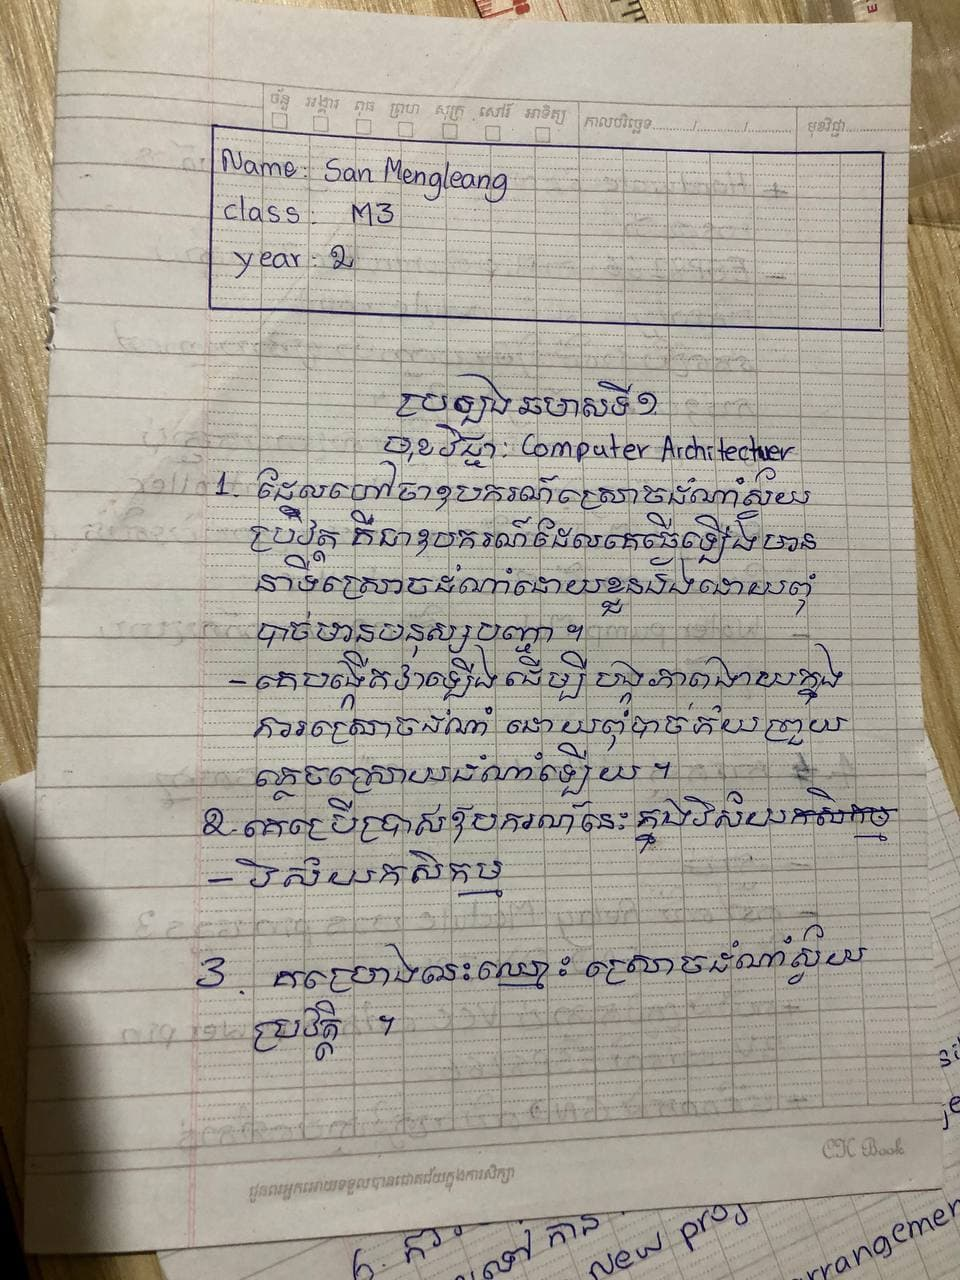 ច័ន្ទ អង្គារ ពុធ ព្រហ សុក្រ សៅរ៍ អាទិត្យ កាលបរិច្ឆេទ........../........../.......... មុខវិជ្ជា..........
Name: San Mengleang
class: M3
year: 2
ប្រឡងឆមាសទី១
មុខវិជ្ជា: Computer Architectuer
1. ដែលហៅថាឧបករណ៍ស្រោចដំណាំស្វ័យ
ប្រវត្តិ គឺជាឧបករណ៍ដែលគេធ្វើឡើងមាន
នាទីស្រោចដំណាំដោយខ្លួនឯងដោយពុំ
បាច់មានមនុស្សបញ្ជា ។
- គេបង្កើតវាឡើងដើម្បី បង្កភាពងាយក្នុង
ការស្រោចដំណាំ ដោយពុំបាច់ភ័យព្រួយ
ភ្លេចស្រោយដំណាំឡើយ ។
2. គេប្រើប្រាស់ឧបករណ៍នេះ ក្នុងវិស័យកសិកម្ម
- វិស័យកសិកម្ម
3. គម្រោងនេះឈ្មោះ ស្រោចដំណាំស្វ័យ
ប្រវត្តិ ។
CK Book
ជូនពរអ្នកអោយទទួលបានជោគជ័យក្នុងការសិក្សា
6. ការ
ទៅ កាន់
New proj
rrangemen